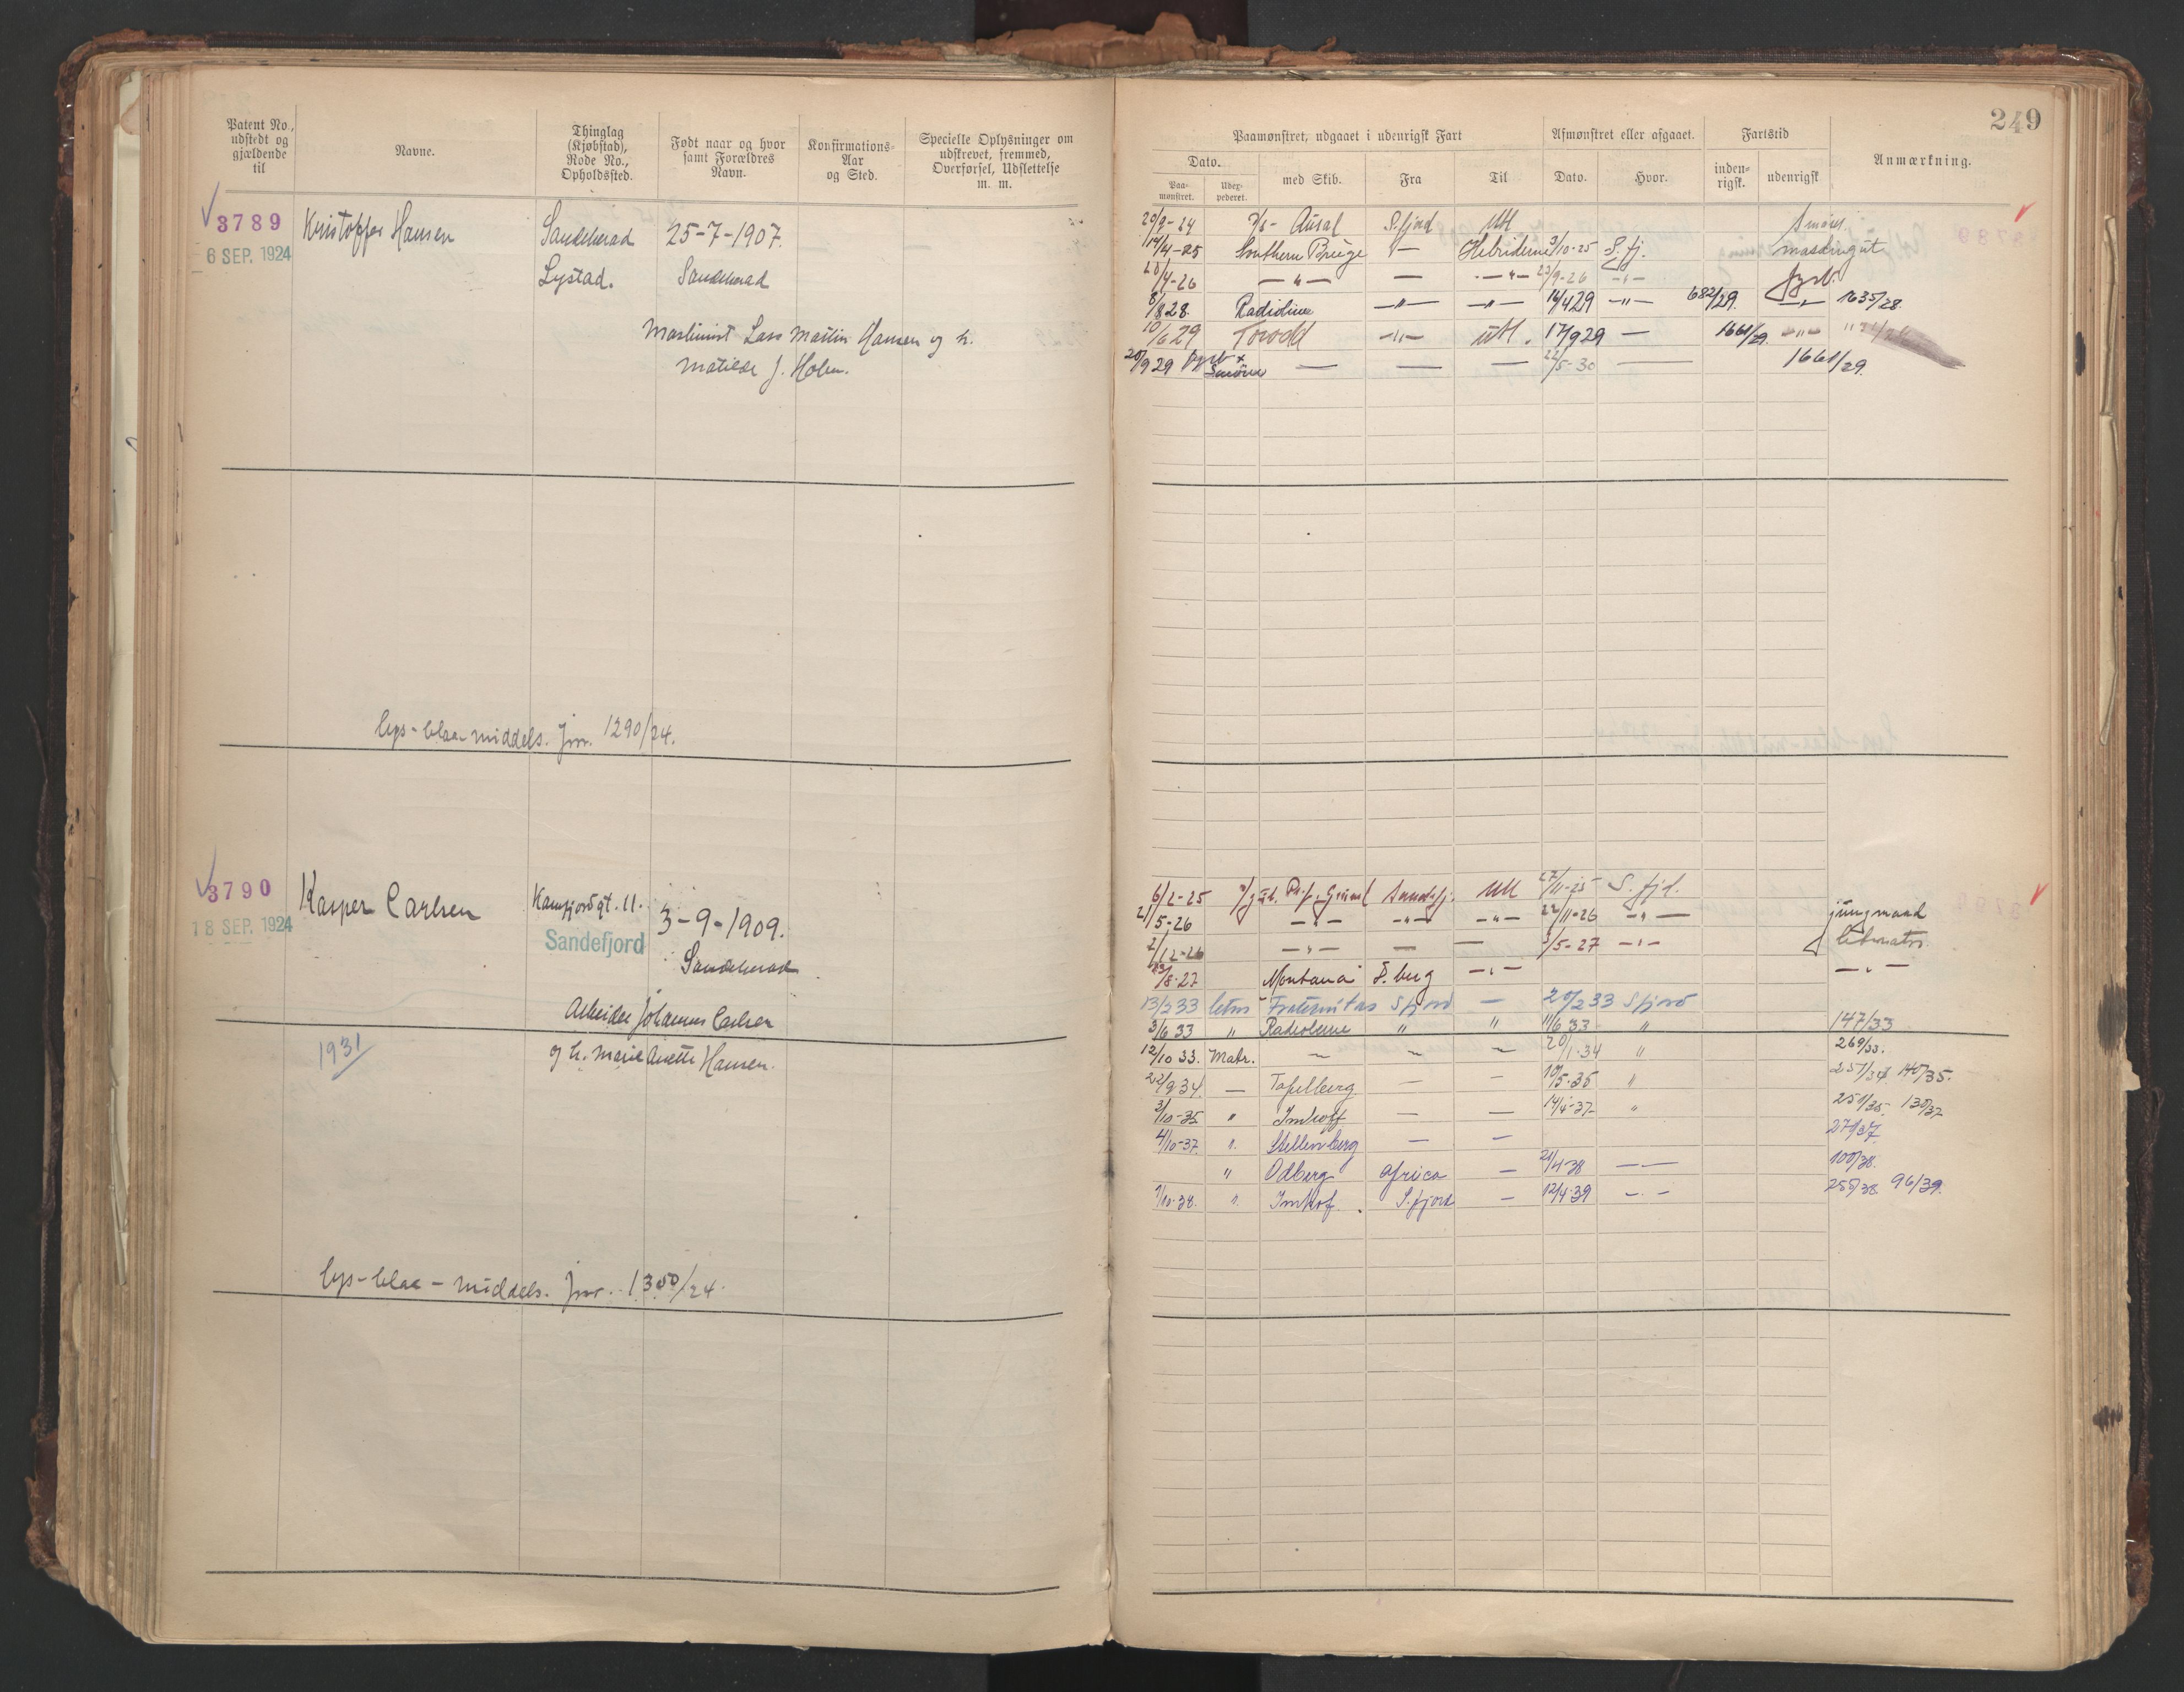 249
Patent No., udstedt og gjældende til
Navne.
Thinglag (Kjøbstad), Rode No., Opholdssted.
Født naar og hvor samt Forældres Navn.
Konfirmations-Aar og Sted.
Specielle Oplysninger om udskrevet, fremmed, Overførsel, Udslettelse m. m.
Paamønstret, udgaaet i udenrigsk Fart
Afmønstret eller afgaaet.
Fartstid
Anmærkning.
Dato.
Paa-mønstret.
Udex-pederet.
med Skib.
Fra
Til
Dato.
Hvor.
inden-rigsk.
udenrigsk
3789
6 SEP. 1924
Kristoffer Hansen
Sandeherad
Lystad.
25-7-1907.
Sandeherad
Maskinist Lars Martin Hansen og h.
Matilde J. Holm.
lys-blaa middels. Jnr. 1290/24.
20/9-24 Ausal S.fjord Utl Smører
14/4-25 Southern Briige — Hebriderne 3/10-25 S.fj. maskingut
28/4-26 —"— — —"— 23/9-26 —"— fyrb.
8/8 28. Radioline —"— —"— 16/4 29 —"— 682/29. —"— 1635/28.
10/6 29 Torodd —"— Utl. 17/9 29 — 1661/29. —"—
20/9 29 fyrb + Smører — — — 22/5-30 — 1661/29.
3790
18 SEP. 1924
Kasper Carlsen
Kamfjordgt. 11.
Sandefjord
3-9-1909.
Sandeherad
Arbeider Johannes Carlsen
og h. Marie Anette Hansen.
1931
lys-blaa-middels. Jnr. 1350/24.
6/2-25 Sandefj. Utl 27/11-25 S. fjd.
21/5-26 —"— —"— —"— 22/11-26 —"— jungmand
2/12-26 —"— — — 3/5-27 —"— letmatr.
23/8-27 Montana F.berg —"— —"—
13/2 33 letm Fraternitas Sfjord — 20/2 33 Sfjord
3/6 33 " Radioleine " " 11/6 33 " 147/33
12/10 33. Matr. — — — 20/1-34 " 269/33.
22/9 34. — Tafelberg — — 10/5-35 " 257/34 140/35.
3/10-35 " Imhoff — — 14/4-37 " 251/35. 130/37
4/10-37. " Stellenberg — — 271/37.
" Odberg Africa — 21/4 38 — 100/38.
1/10-38. " Imhof. S.fjord — 12/4-39 —"— 255/38 96/39.